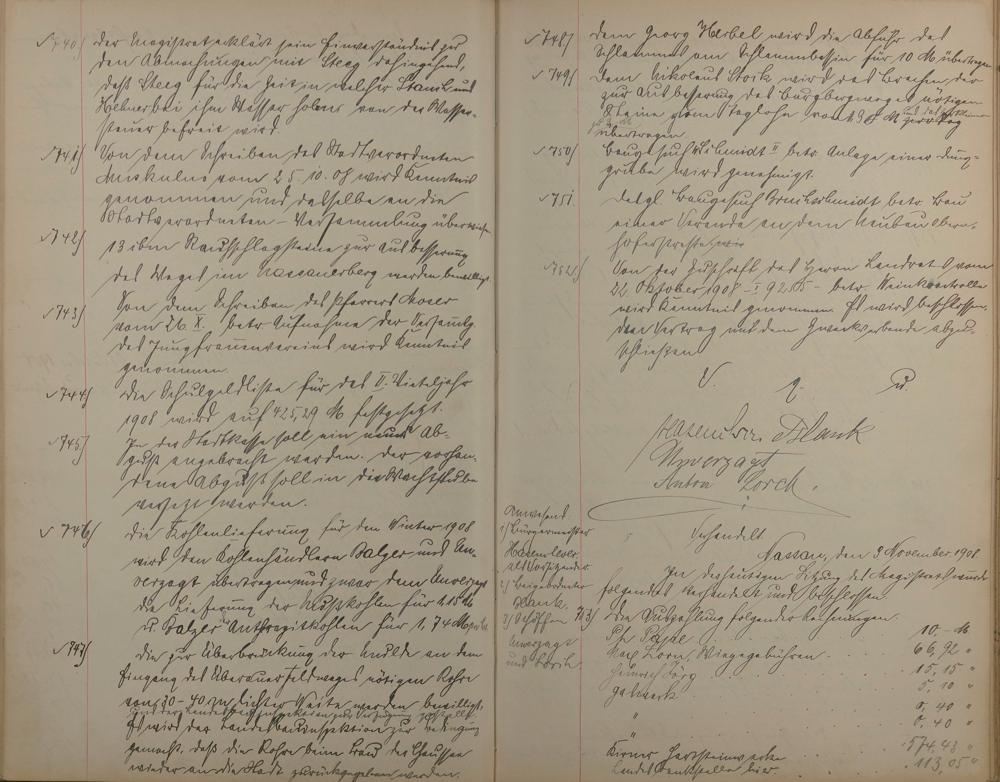 740) Der Magistrat erklärt sein Einverständnis zu
den Abmachungen mit Steeg dahingehend,
daß Steeg für die Zeit in welcher Stank und
Hebner bei ihm Wasser holen von der Wasser-
steuer befreit wird.
741) Von dem Schreiben des Stadtverordneten
Muskulus vom 25.10.08 wird Kenntnis
genommen und dasselbe an die
Stadtverordneten-Versammlung überwiesen
742) 13 cbm Rauschlagsteine zur Ausbesserung
des Weges im Nassauerberg werden bewilligt.
743) Von dem Schreiben des Pfarrers Moser
vom 26. X. betr Aufnahme der Versamlg
des Jungfrauenvereins wird Kenntnis
genommen.
744) Die Schulgeldliste für das II. Vierteljahr
1908 wird auf 425,29 M festgesetzt.
745) In der Stadtkasse soll ein neuer Ab-
guß angebracht werden. Der vorhan-
dene Abguß soll in die Wachtstube
versetzt werden.
746) Die Kohlenlieferung für den Winter 1908
wird den Kohlenhändlern Balzer und Un-
verzagt übertragen und zwar dem Unverzagt
die Lieferung der Nußkohlen für 1.15 M
u. Balzer Anthrazitkohlen für 1,74 M
747) Die zur Überbrückung der Mulde an dem
Eingang des Oberauer Feldweges nötigen Rohre
von 30-40 zm lichter Weite werden bewilligt.
und der Landesbauinspektion zur Verfügung gestellt.
Es wird der Landesbauinspektion zur Bedingung
gemacht, daß die Rohre beim Bau der Chaussee
wieder an die Stadt zurückgegeben werden.
748) Dem Georg Herbel wird die Abfuhr des
Schlammes am Schlammbassin für 10 M übertragen
749) Dem Nikolaus Stork wird das Brechen der
zur Ausbesserung des Burgbergweges nötigen
Steine zum Taglohn von M pro Tag
übertragen.
750) Baugesuch Schmidt II betr. Anlage einer Dung-
grube wird genehmigt.
751. Desgl. Baugesuch betr. Bau
einer Veranda an dem Neubau Obern-
hoferstraße
752) Von der Zuschrift des Herrn Landrats vom
22. Oktober 1908 - I 9255 - betr. Weinkontrolle
wird Kenntnis genommen. Es wird beschlossen,
den Vertrag mit dem Zweckverbande abzu-
schließen
V. g. u.
Hasenclever. Blank
Unverzagt
Anton Lorch.
Anwesend
1) Bürgermeister
Hasenclever
als Vorsitzender
2) Beigeordneter
Blank.
3) Schöffen
Unverzagt
und Lorch.
Verhandelt
Nassau, den 9 November 1908
In der heutigen Sitzung des Magistrats wurde
folgendes verhandelt und beschlossen.
753) Die Auszahlung folgender Rechnungen.
10,- M
Max Zorn, Wiegegebühren 66,92 "
Heinrich Jörg 15,15 "
Gaswerk 5,10 "
" 0,40 "
0,40 "
Hartsteinwerke 574,43 "
Landesbankstelle hier 113,05 "